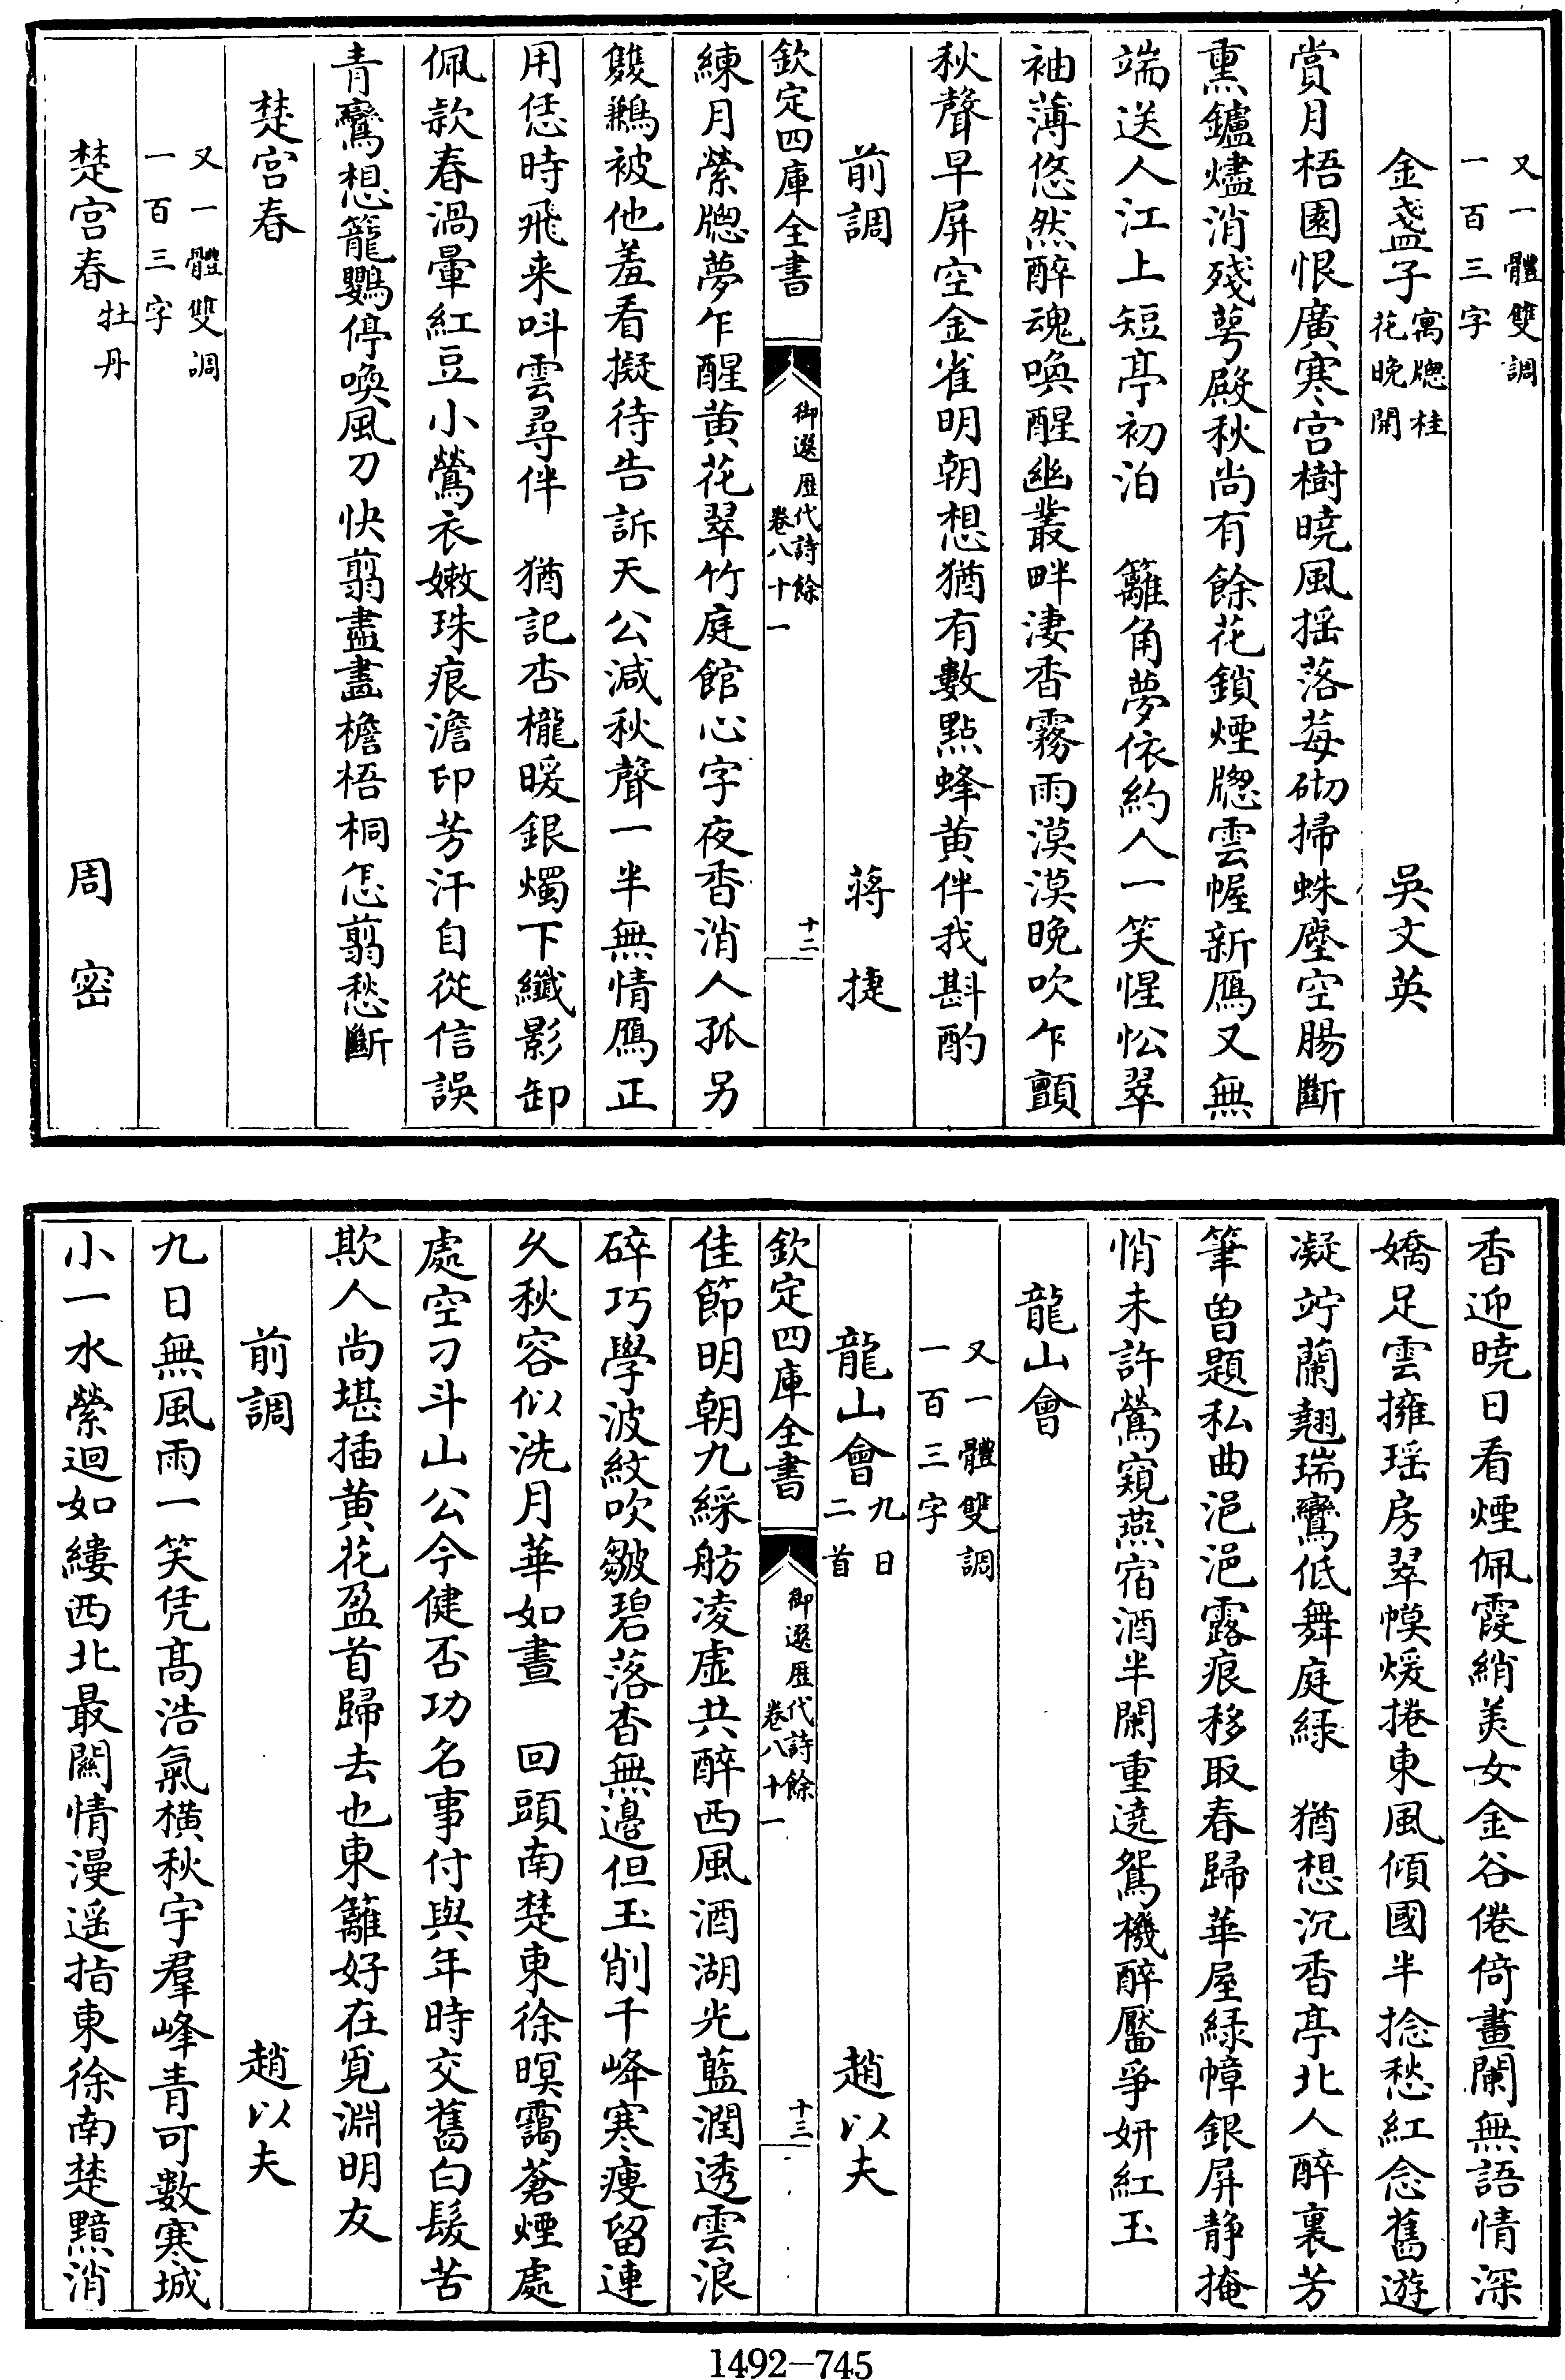 又一體雙調
一百三字
金盞子寓牕桂
花晚開
吳文英
賞月梧園恨廣寒宫樹曉風揺落莓砌掃蛛塵空腸斷
熏鑪燼消殘萼殿秋尚有餘花鎖煙牕雲幄新鴈又無
端送人江上短亭初泊　籬角夢依約人一笑惺忪翠
袖薄悠然醉魂喚醒幽叢畔淒香霧雨漠漠晚吹乍顫
秋聲早屏空金雀明朝想猶有數點蜂黄伴我斟酌
前調
蔣捷
欽定四庫全書
御選歴代詩餘
卷八十一
十二
練月縈牕夢乍醒黄花翠竹庭館心字夜香消人孤另
雙鶼被他羞看擬待告訴天公減秋聲一半無情鴈正
用恁時飛来呌雲尋伴　猶記杏櫳暖銀燭下纖影卸
佩款春渦暈紅豆小鶯衣嫩珠痕澹印芳汗自從信誤
青鸞想籠鸚停喚風刀快翦盡畫檐梧桐怎翦愁斷
楚宫春
又一體雙調
一百三字
楚宫春牡丹
周密
香迎曉日看煙佩霞綃美女金谷倦倚畫闌無語情深
嬌足雲擁瑶房翠幙煖捲東風傾國半捻愁紅念舊遊
凝竚蘭翹瑞鸞低舞庭緑　猶想沉香亭北人醉裏芳
筆曾題私曲浥浥露痕移取春歸華屋緑幛銀屏静掩
悄未許鶯窺燕宿酒半闌重遶鴛機醉靨爭妍紅玉
龍山會
又一體雙調
一百三字
龍山會九日
二首
趙以夫
欽定四庫全書
御選歴代詩餘
卷八十一
十三
佳節明朝九綵舫凌虚共醉西風酒湖光藍潤透雲浪
碎巧學波紋吹皺碧落杳無邉但玉削千峰寒瘦留連
乆秋容似洗月華如晝　回頭南楚東徐暝靄蒼煙處
處空刁斗山公今健否功名事付與年時交舊白髮苦
欺人尚堪插黄花盈首歸去也東籬好在覓淵明友
前調
趙以夫
九日無風雨一笑凭髙浩氣横秋宇羣峰青可數寒城
小一水縈迴如縷西北最關情漫遥指東徐南楚黯消
1492-745